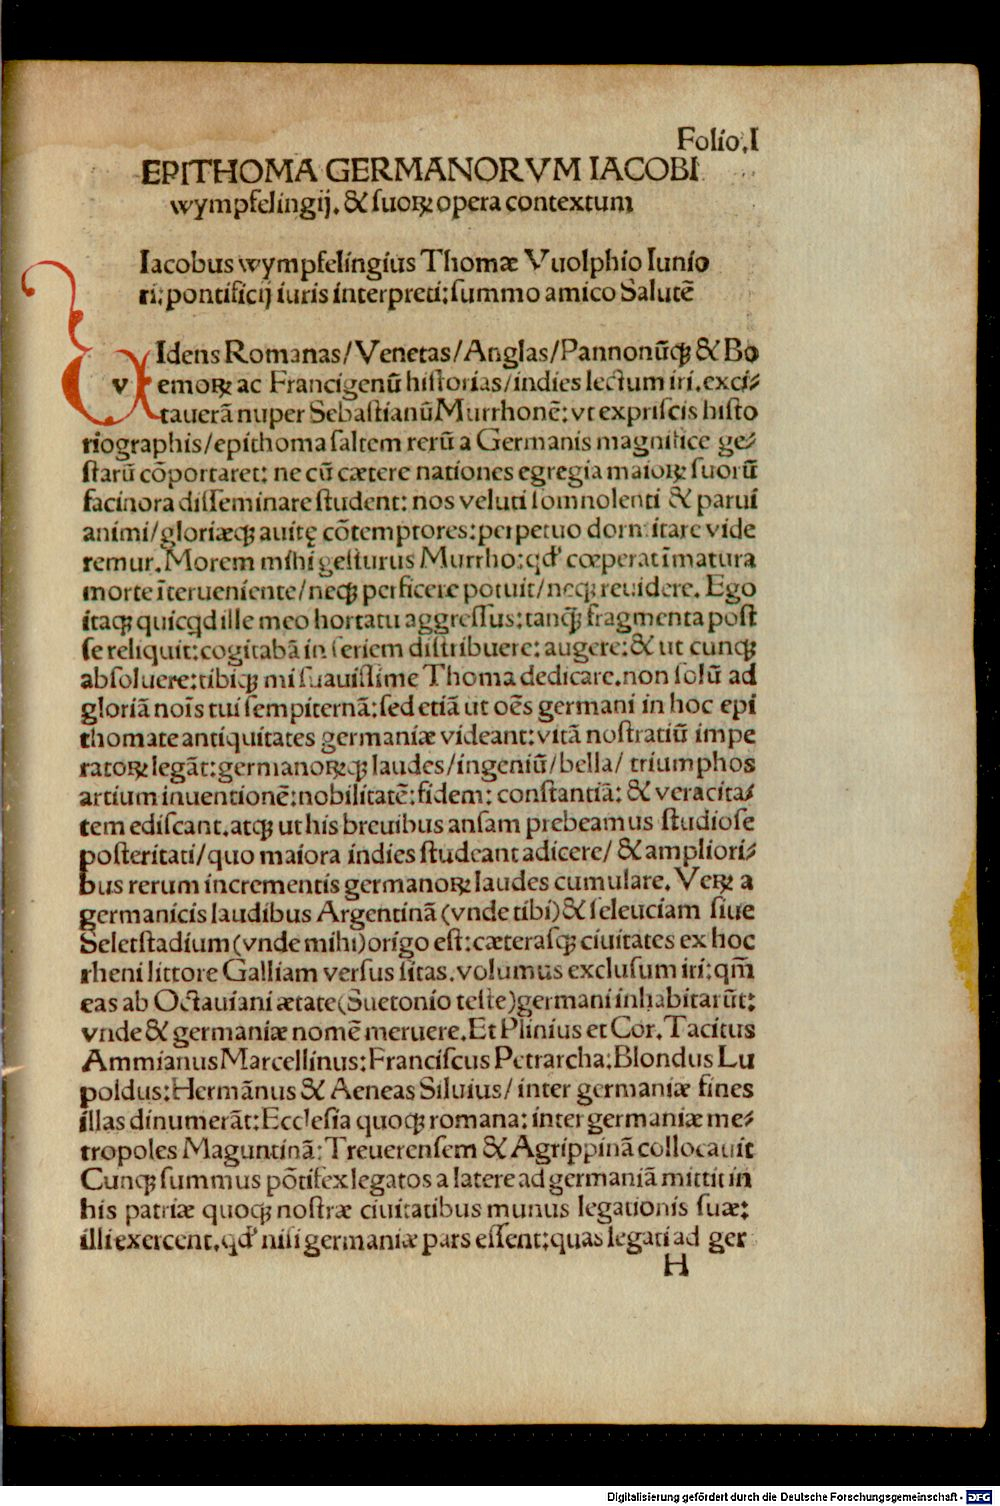 Folio.I
EPITHOMA GERMANORVM IACOBI
wympfelingij. & ſuoꝝ opera contextum
Iacobus wympfelingius Thomæ Vuolphio Iunio
ri: pontificij iuris interpreti: ſummo amico Salutē
v
Idens Romanas/Venetas/Anglas/Pannonūqꝫ & Bo
emoꝝ ac Francigenū hiſtorias/indies lectum iri. exci⸗
tauerā nuper Sebaſtianū Murrhonē: vt expriſcis hiſto
riographis/epithoma ſaltem rerū a Germanis magnifice ge⸗
ſtarū cōportaret: ne cū cætere nationes egregia maioꝝ ſuorū
facinora diſſeminare ſtudent: nos veluti ſomnolenti & parui
animi/gloriæqꝫ auitę cōtemptores: perpetuo dormitare vide
remur. Morem mihi geſturus Murrho: qď cœperat īmatura
morte īterueniente/neqꝫ perficere potuit/neqꝫ reuidere. Ego
itaqꝫ quicqd ille meo hortatu aggreſſus: tanqꝫ̄ fragmenta poſt
ſe reliquit: cogitabā in ſeriem diſtribuere: augere: & ut cunqꝫ
abſoluere: tibiqꝫ mi ſuauiſſime Thoma dedicare. non ſolū ad
gloriā noīs tui ſempiternā: ſed etiā ut oēs germani in hoc epi
thomate antiquitates germaniæ videant: vitā noſtratiū impe
ratoꝝ legāt: germanoꝝqꝫ laudes/ingeniū/bella/ triumphos
artium inuentionē: nobilitatē: fidem: conſtantiā: & veracita⸗
tem ediſcant. atqꝫ ut his breuibus anſam prebeamus ſtudioſe
poſteritati/quo maiora indies ſtudeant adicere/ & ampliori⸗
bus rerum incrementis germanoꝝ laudes cumulare. Veꝝ a
germanicis laudibus Argentinā (vnde tibi) & ſeleuciam ſiue
Seletſtadium (vnde mihi) origo eſt: cæteraſqꝫ ciuitates ex hoc
rheni littore Galliam verſus ſitas. volumus excluſum iri: qm̄
eas ab Octauiani ætate (Suetonio teſte) germani inhabitarūt:
vnde & germaniæ nomē meruere. Et Plinius et Cor. Tacitus
Ammianus Marcellinus: Franciſcus Petrarcha: Blondus Lu
poldus: Hermānus & Aeneas Siluius/ inter germaniæ fines
illas dinumerāt: Eccleſia quoqꝫ romana: inter germaniæ me⸗
tropoles Maguntinā: Treuerenſem & Agrippinā collocauit
Cunqꝫ ſummus pōtifex legatos a latere ad germaniā mittit in
his patriæ quoqꝫ noſtræ ciuitatibus munus legationis ſuæ:
illi exercent. qď niſi germaniæ pars eſſent: quas legati ad ger
H
Digitalisierung gefördert durch die Deutsche Forschungsgemeinschaft - DFG